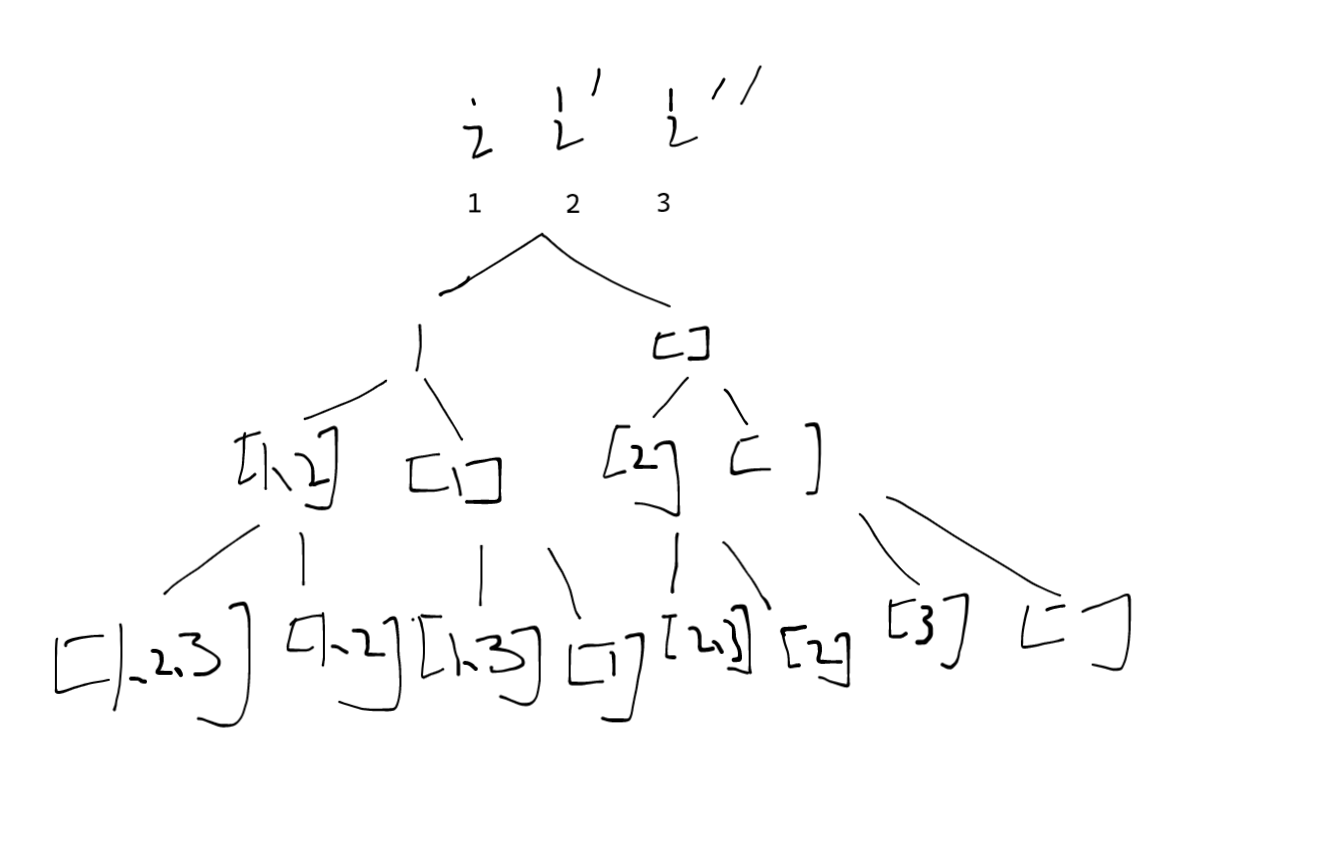 i i' i''
1 2 3
1 []
[1,2] [1] [2] [ ]
[1,2,3] [1,2] [1,3] [1] [2,3] [2] [3] [ ]